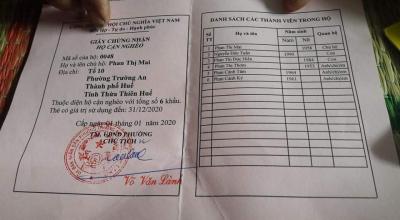 HỘI CHỦ NGHĨA VIỆT NAM
Độc lập - Tự do - Hạnh phúc
GIẤY CHỨNG NHẬN
HỘ CẬN NGHÈO
Mã số của hộ: 0048
Họ và tên chủ hộ: Phan Thị Mai
Địa chỉ: Tổ 10
Phường Trường An
Thành phố Huế
Tỉnh Thừa Thiên Huế
Thuộc diện hộ cận nghèo với tổng số 6 khẩu.
Thẻ có giá trị sử dụng đến: 31/12/2020
Cấp ngày 01 tháng 01 năm 2020
TM. UBND PHƯỜNG
CHỦ TỊCH
Võ Văn Lành
DANH SÁCH CÁC THÀNH VIÊN TRONG HỘ
Số TT Họ và tên Năm sinh Quan hệ
Nam Nữ
1 Phan Thị Mai 1958 Chủ hộ
2 Nguyễn Đức Tuấn 1990 Con
3 Phan Thị Đức Hiền 1984 Con
4 Phan Thị Thơm 1953 Anh/chị/em
5 Phan Cảnh Tâm 1964 Anh/chị/em
6 Phan Cảnh Kỳ 1961 Anh/chị/em